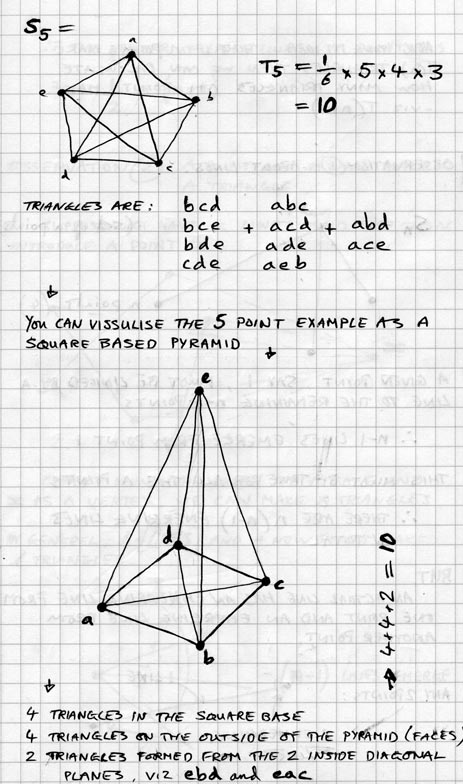 S5 =
a
e
b
d
c
T5 = 1/6 × 5 × 4 × 3
= 10
TRIANGLES ARE: bcd abc
bce + acd + abd
bde ade ace
cde aeb
↓
YOU CAN VISSULISE THE 5 POINT EXAMPLE AS A
SQUARE BASED PYRAMID
↓
e
d
c
a
b
→ 4+4+2 = 10
↓
4 TRIANGLES IN THE SQUARE BASE
4 TRIANGLES ON THE OUTSIDE OF THE PYRAMID (FACES)
2 TRIANGLES FORMED FROM THE 2 INSIDE DIAGONAL
PLANES, VIZ ebd and eac